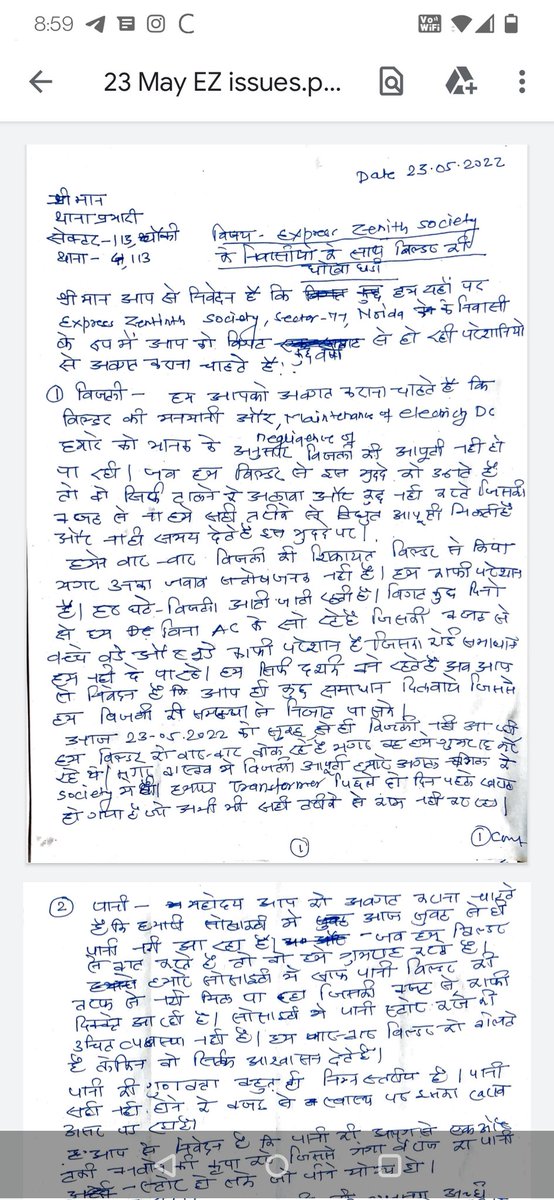 8:59
Vo)) WiFi
23 May EZ issues.p...
Date 23.05.2022
श्री मान
थाना प्रभारी
सेक्टर-113, चौकी
थाना - 113
विषय - Express Zenith Society
के निवासीयो के साथ बिल्डर की
धोखा धड़ी
श्री मान आप से निवेदन है कि हम यहाँ पर
Express Zentinth Society, Sector-77, Noida के निवासी
के रूप में आप को विगत कुछ वर्षों से हो रही परेशानियो
से अवगत कराना चाहते हैं।
① बिजली - हम आपको अवगत कराना चाहते हैं कि
बिल्डर की मनमानी और, Maintenance of
negligence of
बिजली की आपूर्ती नही हो
पा रही। जब हम बिल्डर से इस मुददे को उठाते हैं
तो वो सिर्फ टालने के अलावा और कुछ नही करते जिसकी
वजह से ना हमे सही तरीके से विद्युत आपूर्ती मिलती है
और ना ही समय देते है इस मुददे पर।
हमने बार-बार बिजली की शिकायत बिल्डर से किया
मगर उनका जवाब संतोषजनक नही है। हम काफी परेशान
है। हर घंटे-बिजली आती जाती रहती है। विगत कुछ दिनो
से हम बिना AC के सो रहे है जिसकी वजह से
बच्चे बूढ़े और काफी परेशान है जिसका कोई समाधान
हम नही दे पा रहे। हम सिर्फ दर्शक बने रहते है अब आप
से निवेदन है कि आप ही कुछ समाधान दिलवाये जिससे
हम बिजली की समस्या से निजात पा सके।
आज 23-05.2022 को सुबह से ही बिजली नही आ रही
हम बिल्डर को बार-बार बोल रहे है मगर वह हमे गुमराह कर
रहे थे। बिजली आपूर्ती हमारे
society में थी। हमारा Transformer पिछले दो दिन पहले खराब
हो गया है जो अभी भी सही तरीके से काम नही कर रहा।
①
① Cont
② पानी - महोदय आप को अवगत कराना चाहते
है कि हमारी सोसाइटी में आज सुबह से ही
पानी नही आ रहा है। जब हम बिल्डर
से बात करते है तो वो हमे गुमराह करते है।
हमारे सोसाइटी में साफ पानी बिल्डर की
तरफ से नही मिल पा रहा जिसकी वजह से काफी
दिक्कते आ रही है। सोसाइटी में पानी स्टोर करने की
उचित व्यवस्था नही है। हम बार-बार बिल्डर को बोलते
है लेकिन वो सिर्फ आश्वासन देते है।
पानी की गुणवत्ता बहुत ही निम्न स्तरीय है। पानी
सही नही होने के वजह से स्वास्थ पर इसका खराब
असर पड़ रहा है।
आप से निवेदन है कि पानी की
की कृपा करे जिससे गंगा का पानी
स्टोर हो सके जो पीने योग्य हो।